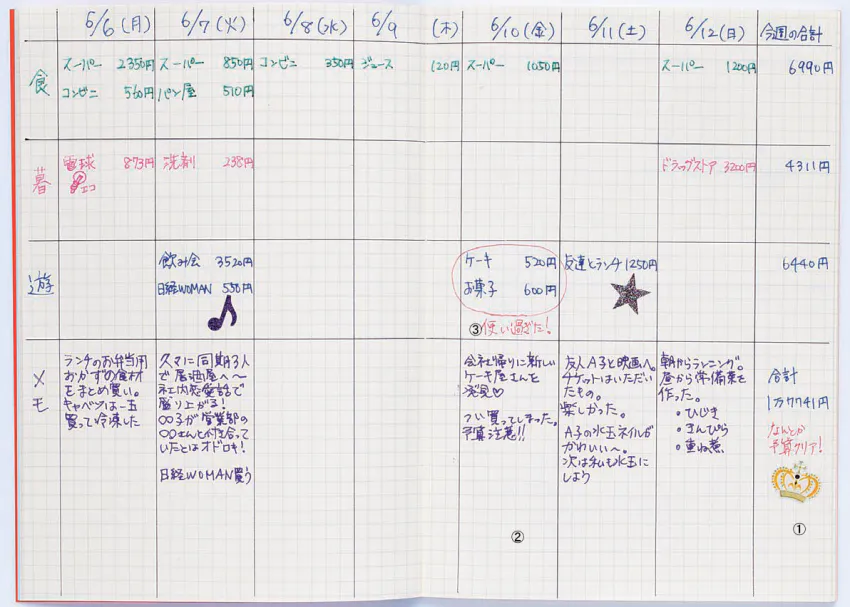 6/6(月) 6/7(火) 6/8(水) 6/9 (木) 6/10(金) 6/11(土) 6/12(日) 今週の合計
食 スーパー 2350円 スーパー 850円 コンビニ 350円 ジュース 120円 スーパー 1050円 スーパー 1200円 6990円
コンビニ 560円 パン屋 510円
暮 電球 873円 洗剤 238円 ドラッグストア 3200円 4311円
エコ
遊 飲み会 3520円 ケーキ 520円 友達とランチ 1250円 6440円
日経WOMAN 550円 お菓子 600円
③使い過ぎた!
メモ
ランチのお弁当用
おかずの食材
をまとめ買い。
キャベツは一玉
買って冷凍した
久々に同期3人
で居酒屋へ〜
社内恋愛話で
盛り上がる!
○○子が営業部の
○○さんと付き合って
いたとはオドロキ!
日経WOMAN買う
会社帰りに新しい
ケーキ屋さんを
発見♡
つい買ってしまった。
予算注意!!
②
友人A子と映画へ。
チケットはいただい
たもの。
楽しかった。
A子の水玉ネイルが
かわいい〜。
次は私も水玉に
しよう
朝からランニング。
昼から常備菜を
作った。
・ひじき
・きんぴら
・重ね煮
合計
1万7741円
なんとか
予算クリア!
①